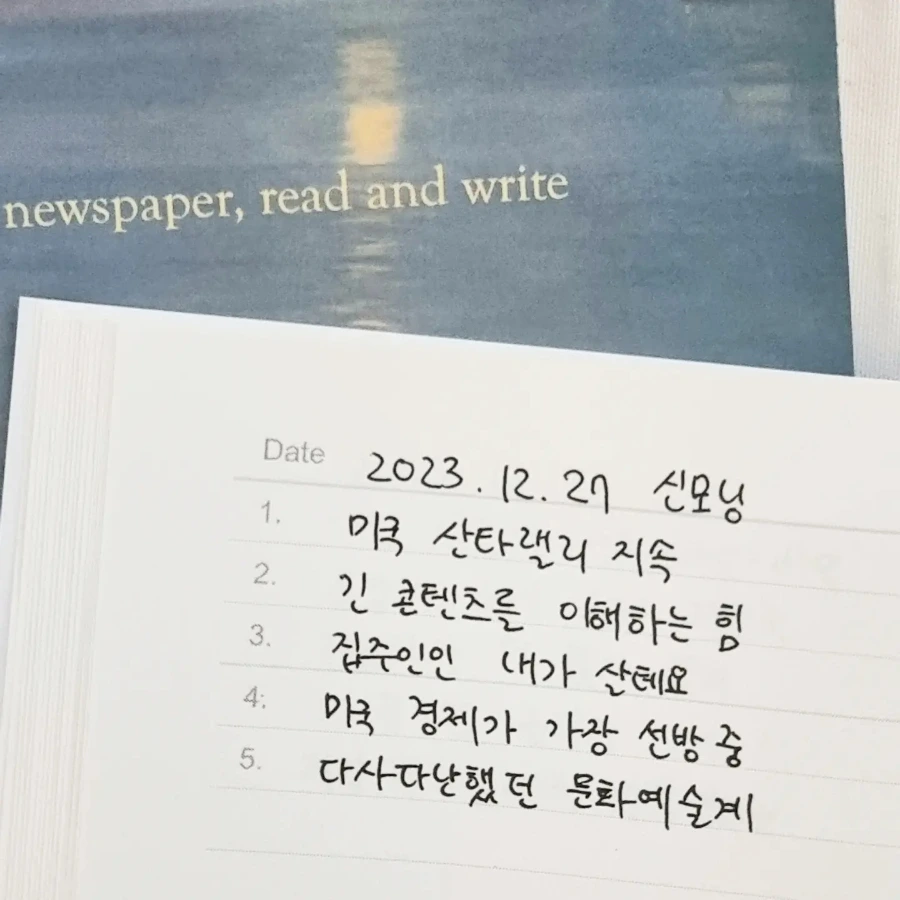 newspaper, read and write
Date 2023.12.27 신모닝
1. 미국 산타랠리 지속
2. 긴 콘텐츠를 이해하는 힘
3. 집주인인 내가 살테요
4. 미국 경제가 가장 선방 중
5. 다사다난했던 문화예술계